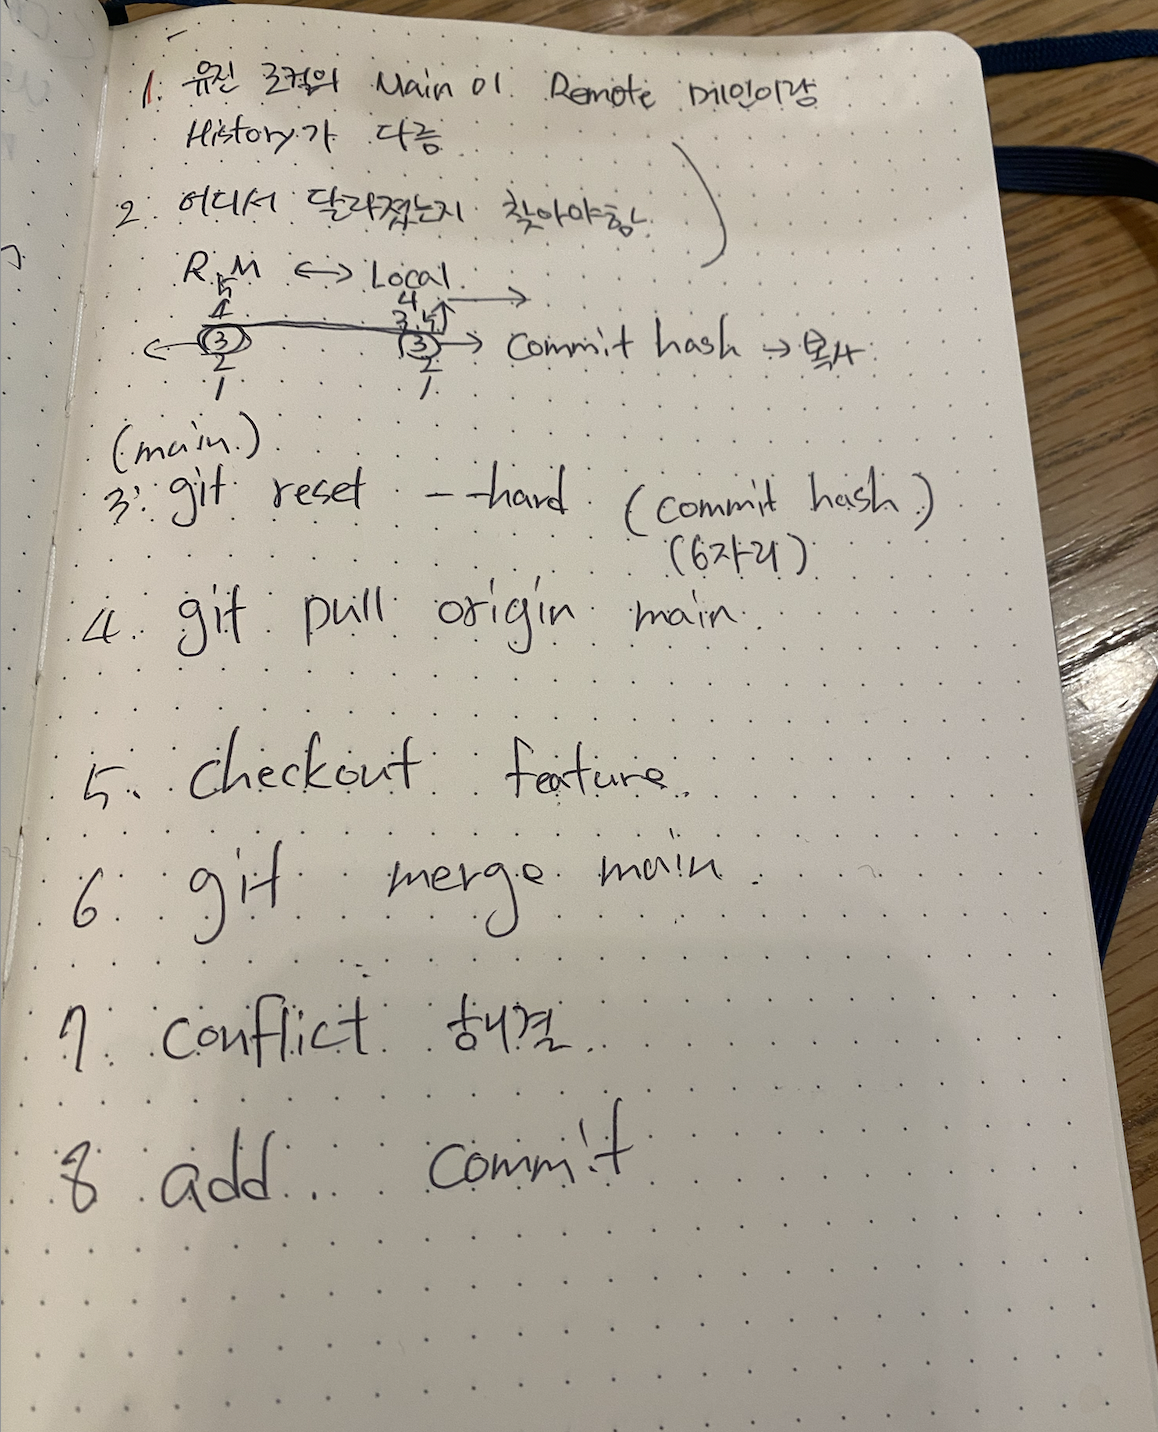 1. 유진 로컬의 Main이 Remote 메인이랑
History가 다름
2. 어디서 달라졌는지 찾아야함.
R.M ↔ Local
5 4
4 3.5
3 3 → Commit hash → 복사
2 2
1 1
(main)
3. git reset --hard (commit hash)
(6자리)
4. git pull origin main.
5. checkout feature.
6. git merge main.
7. conflict 해결.
8 add... commit